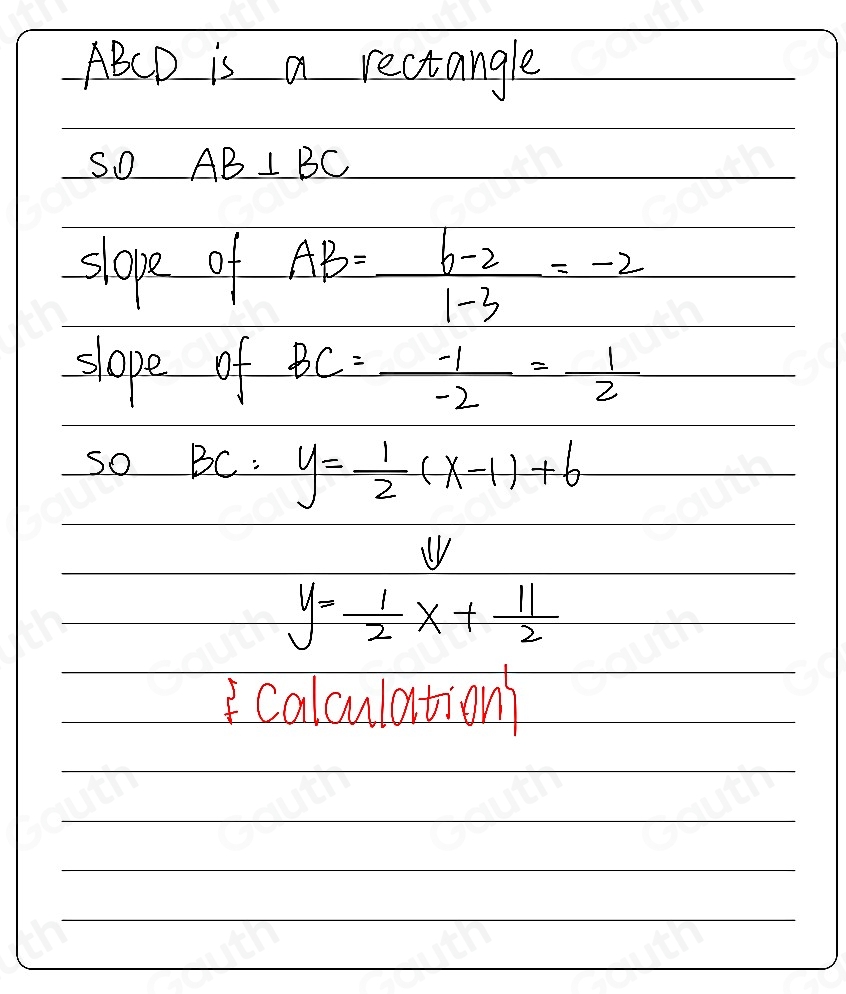 ABCD is a rectangle
so AB ⊥ BC
slope of AB = \frac{6-2}{1-3} = -2
slope of BC = \frac{-1}{-2} = \frac{1}{2}
so BC: y = \frac{1}{2}(x-1)+6
⇓
y = \frac{1}{2}x + \frac{11}{2}
{calculation}